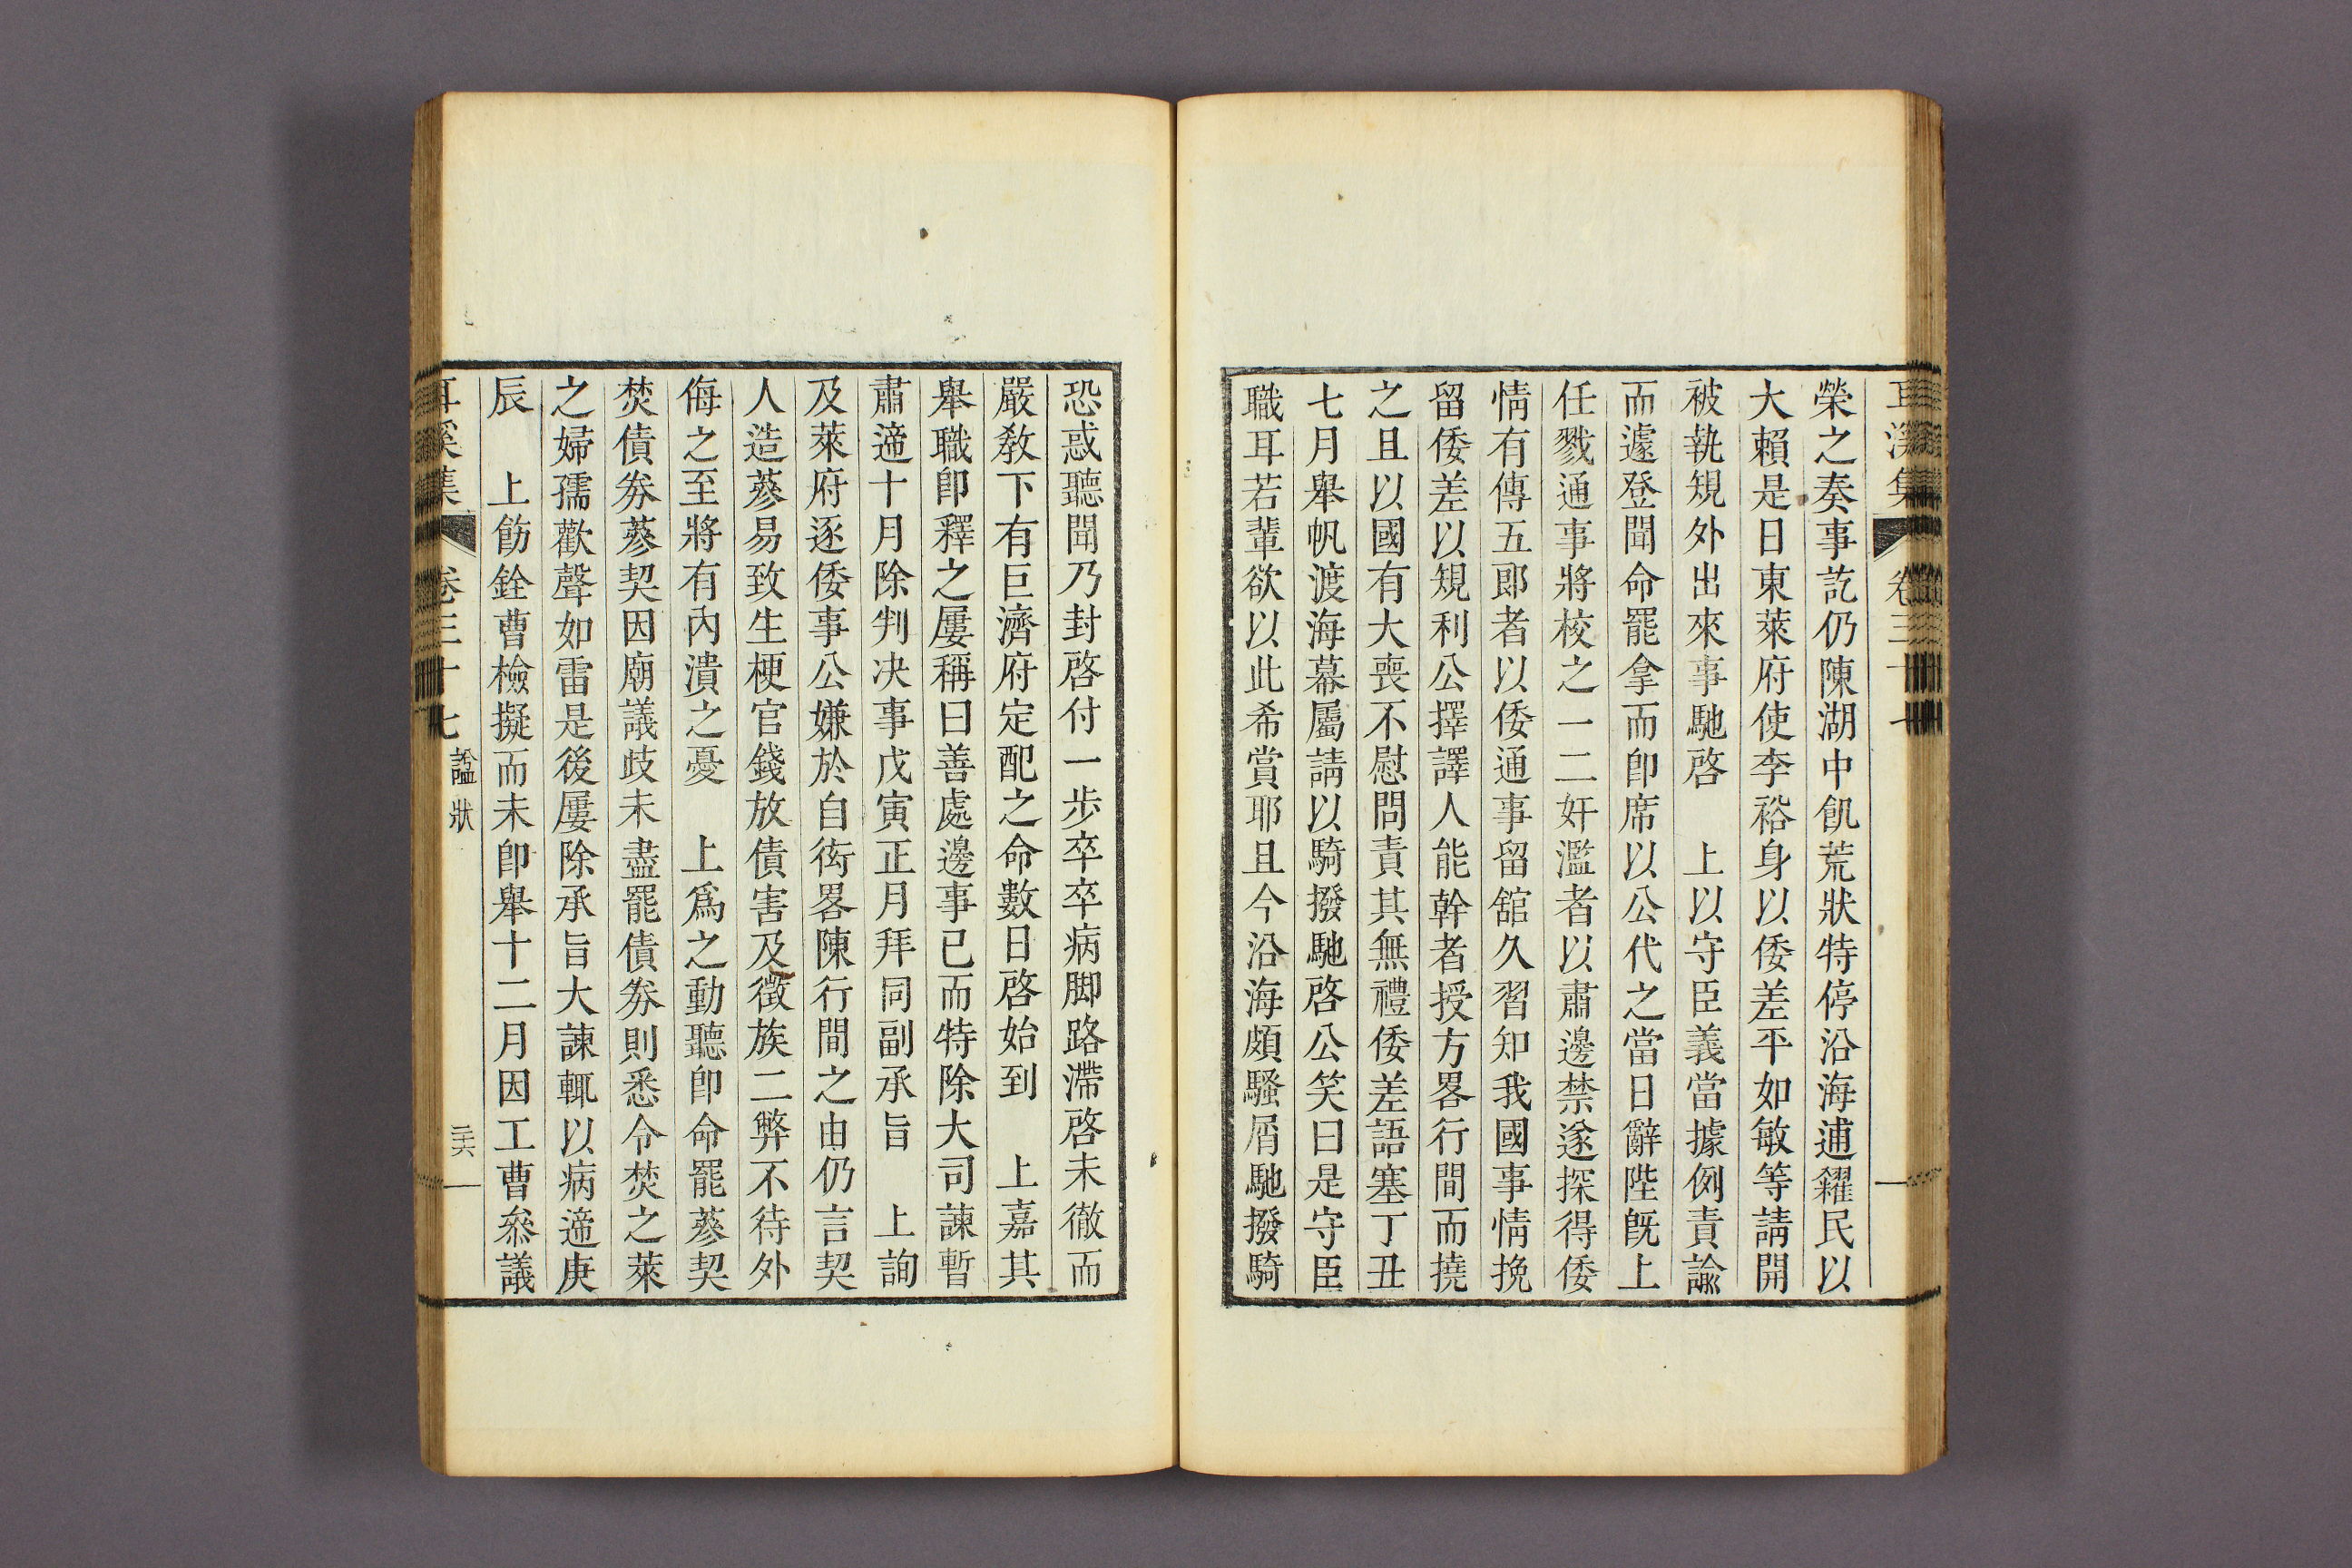 榮之奏事訖仍陳湖中飢荒狀特停沿海浦糴民以
大賴是日東萊府使李裕身以倭差平如敏等請開
被執規外出來事馳啓　上以守臣義當據例責諭
而遽登聞命罷拿而卽席以公代之當日辭陛旣上
任戮通事將校之一二奸濫者以肅邊禁遂探得倭
情有傳五郞者以倭通事留舘久習知我國事情挽
留倭差以規利公擇譯人能幹者授方畧行間而撓
之且以國有大喪不慰問責其無禮倭差語塞丁丑
七月舉帆渡海幕屬請以騎撥馳啓公笑曰是守臣
職耳若輩欲以此希賞耶且今沿海頗騷屑馳撥騎
恐惑聽聞乃封啓付一步卒卒病脚路滯啓未徹而
嚴敎下有巨濟府定配之命數日啓始到　上嘉其
舉職卽釋之屢稱曰善處邊事已而特除大司諫暫
肅遆十月除判决事戊寅正月拜同副承旨　上詢
及萊府逐倭事公嫌於自衒畧陳行間之由仍言契
人造蔘易致生梗官錢放債害及徵族二弊不待外
侮之至將有內潰之憂　上爲之動聽卽命罷蔘契
焚債劵蔘契因廟議歧未盡罷債劵則悉令焚之萊
之婦孺歡聲如雷是後屢除承旨大諫輒以病遆庚
辰　上飭銓曹檢擬而未卽舉十二月因工曹叅議
耳溪集　卷三十七　諡狀　三十六